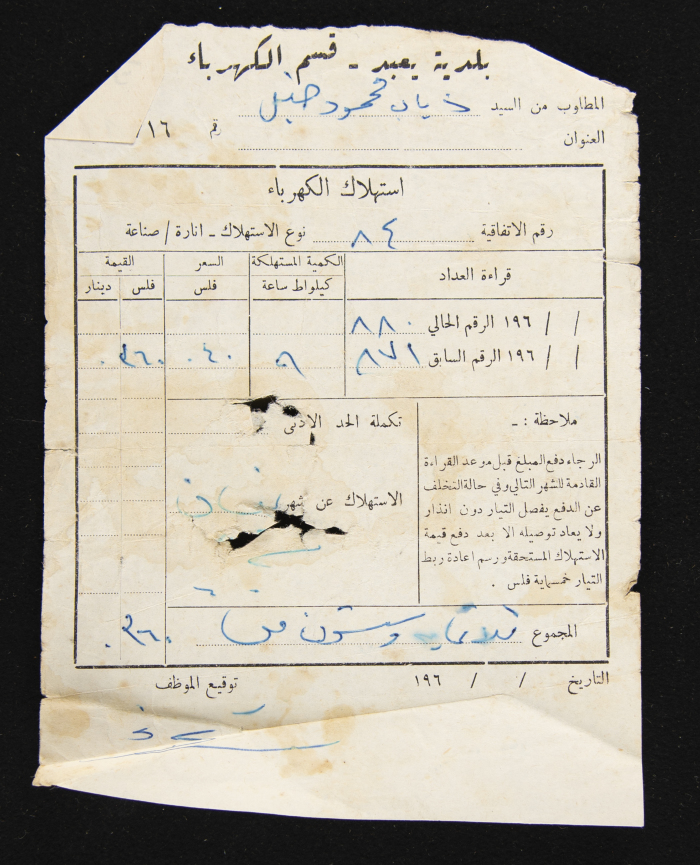 بلدية يعبد - قسم الكهرباء
المطلوب من السيد ذياب محمود
العنوان رقم ١٦/
استهلاك الكهرباء
رقم الاتفاقية ٨٤ نوع الاستهلاك - انارة / صناعة
قراءة العداد الكمية المستهلكة السعر القيمة
كيلواط ساعة فلس فلس دينار
/ / ١٩٦ الرقم الحالي ٨٨٠
/ / ١٩٦ الرقم السابق ٨٧١ ٩ ٠٤٠ ٣٦٠ ٠
ملاحظة : -
الرجاء دفع المبلغ قبل موعد القراءة
القادمة للشهر التالي وفي حالة التخلف
عن الدفع يفصل التيار دون انذار
ولا يعاد توصيله الا بعد دفع قيمة
الاستهلاك المستحقة ورسم اعادة ربط
التيار خمسماية فلس .
تكملة الحد الادنى
الاستهلاك عن شهر نيسان
المجموع ثلاثماية وستون فلسا ٣٦٠ ٠
التاريخ / / ١٩٦ توقيع الموظف